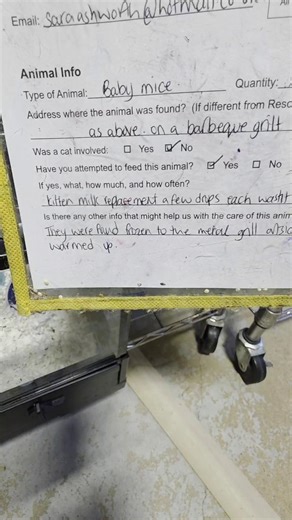 Email: Saraashworth@hotmail.co.uk
Animal Info
Type of Animal: Baby mice Quantity:
Address where the animal was found? (If different from Resc
as above. on a barbeque grill
Was a cat involved: ☐ Yes ☑ No
Have you attempted to feed this animal? ☑ Yes ☐ No
If yes, what, how much, and how often?
Kitten milk replacement a few drops each
Is there any other info that might help us with the care of this anim
They were found frozen to the metal grill
warmed up.